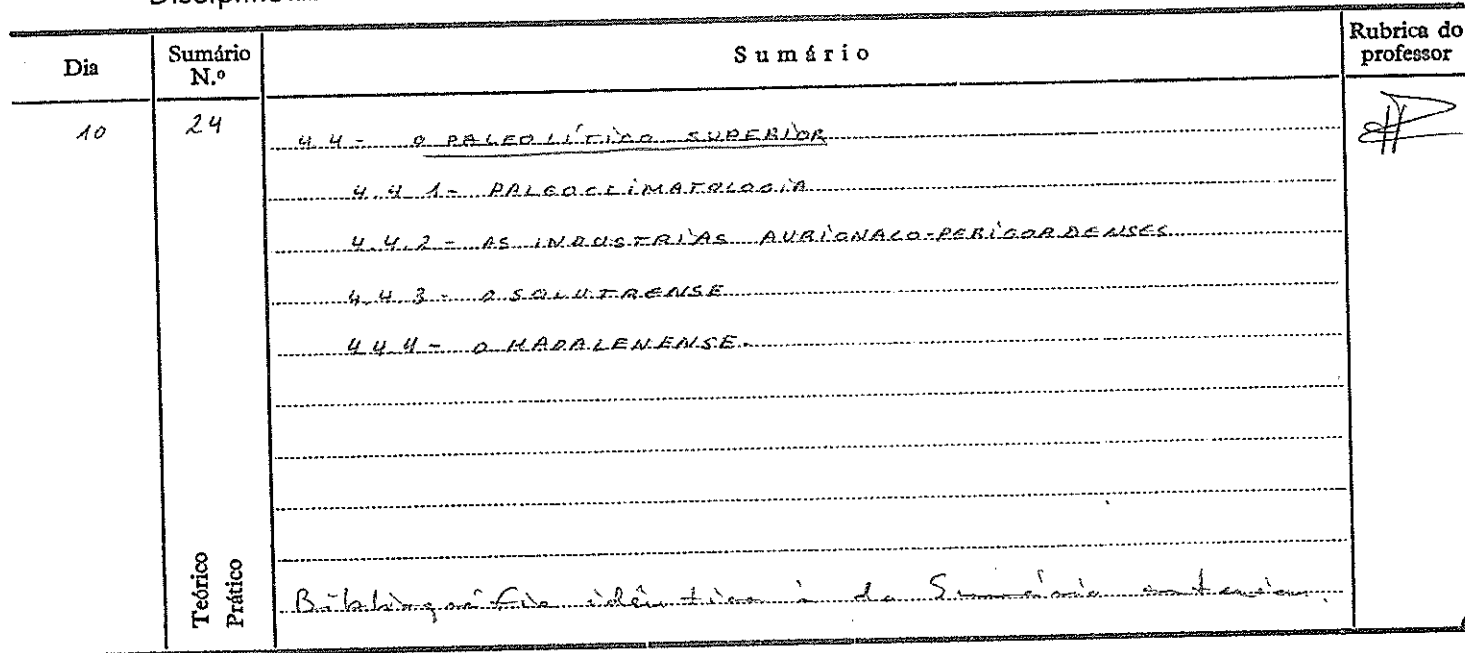 Dia
Sumário N.º
Sumário
Rubrica do professor
10
24
4.4- O PALEOLÍTICO SUPERIOR
4.4.1- PALEOCLIMATOLOGIA
4.4.2- AS INDUSTRIAS AURIGNACO-PERIGORDENSES
4.4.3- O SOLUTRENSE
4.4.4- O MADALENENSE.
Teórico
Prático
Bibliografia idêntica à do Sumário anterior.